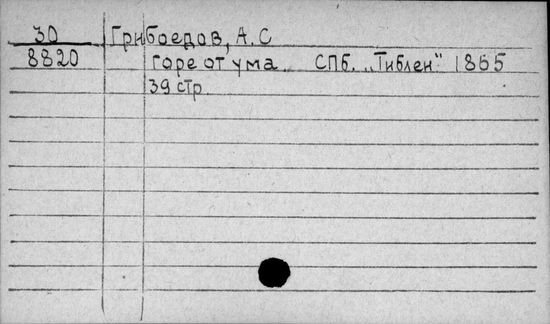 30 Грибоедов, А.С
8820 Горе от ума. СПб. „Тиблен" 1865
39 стр.